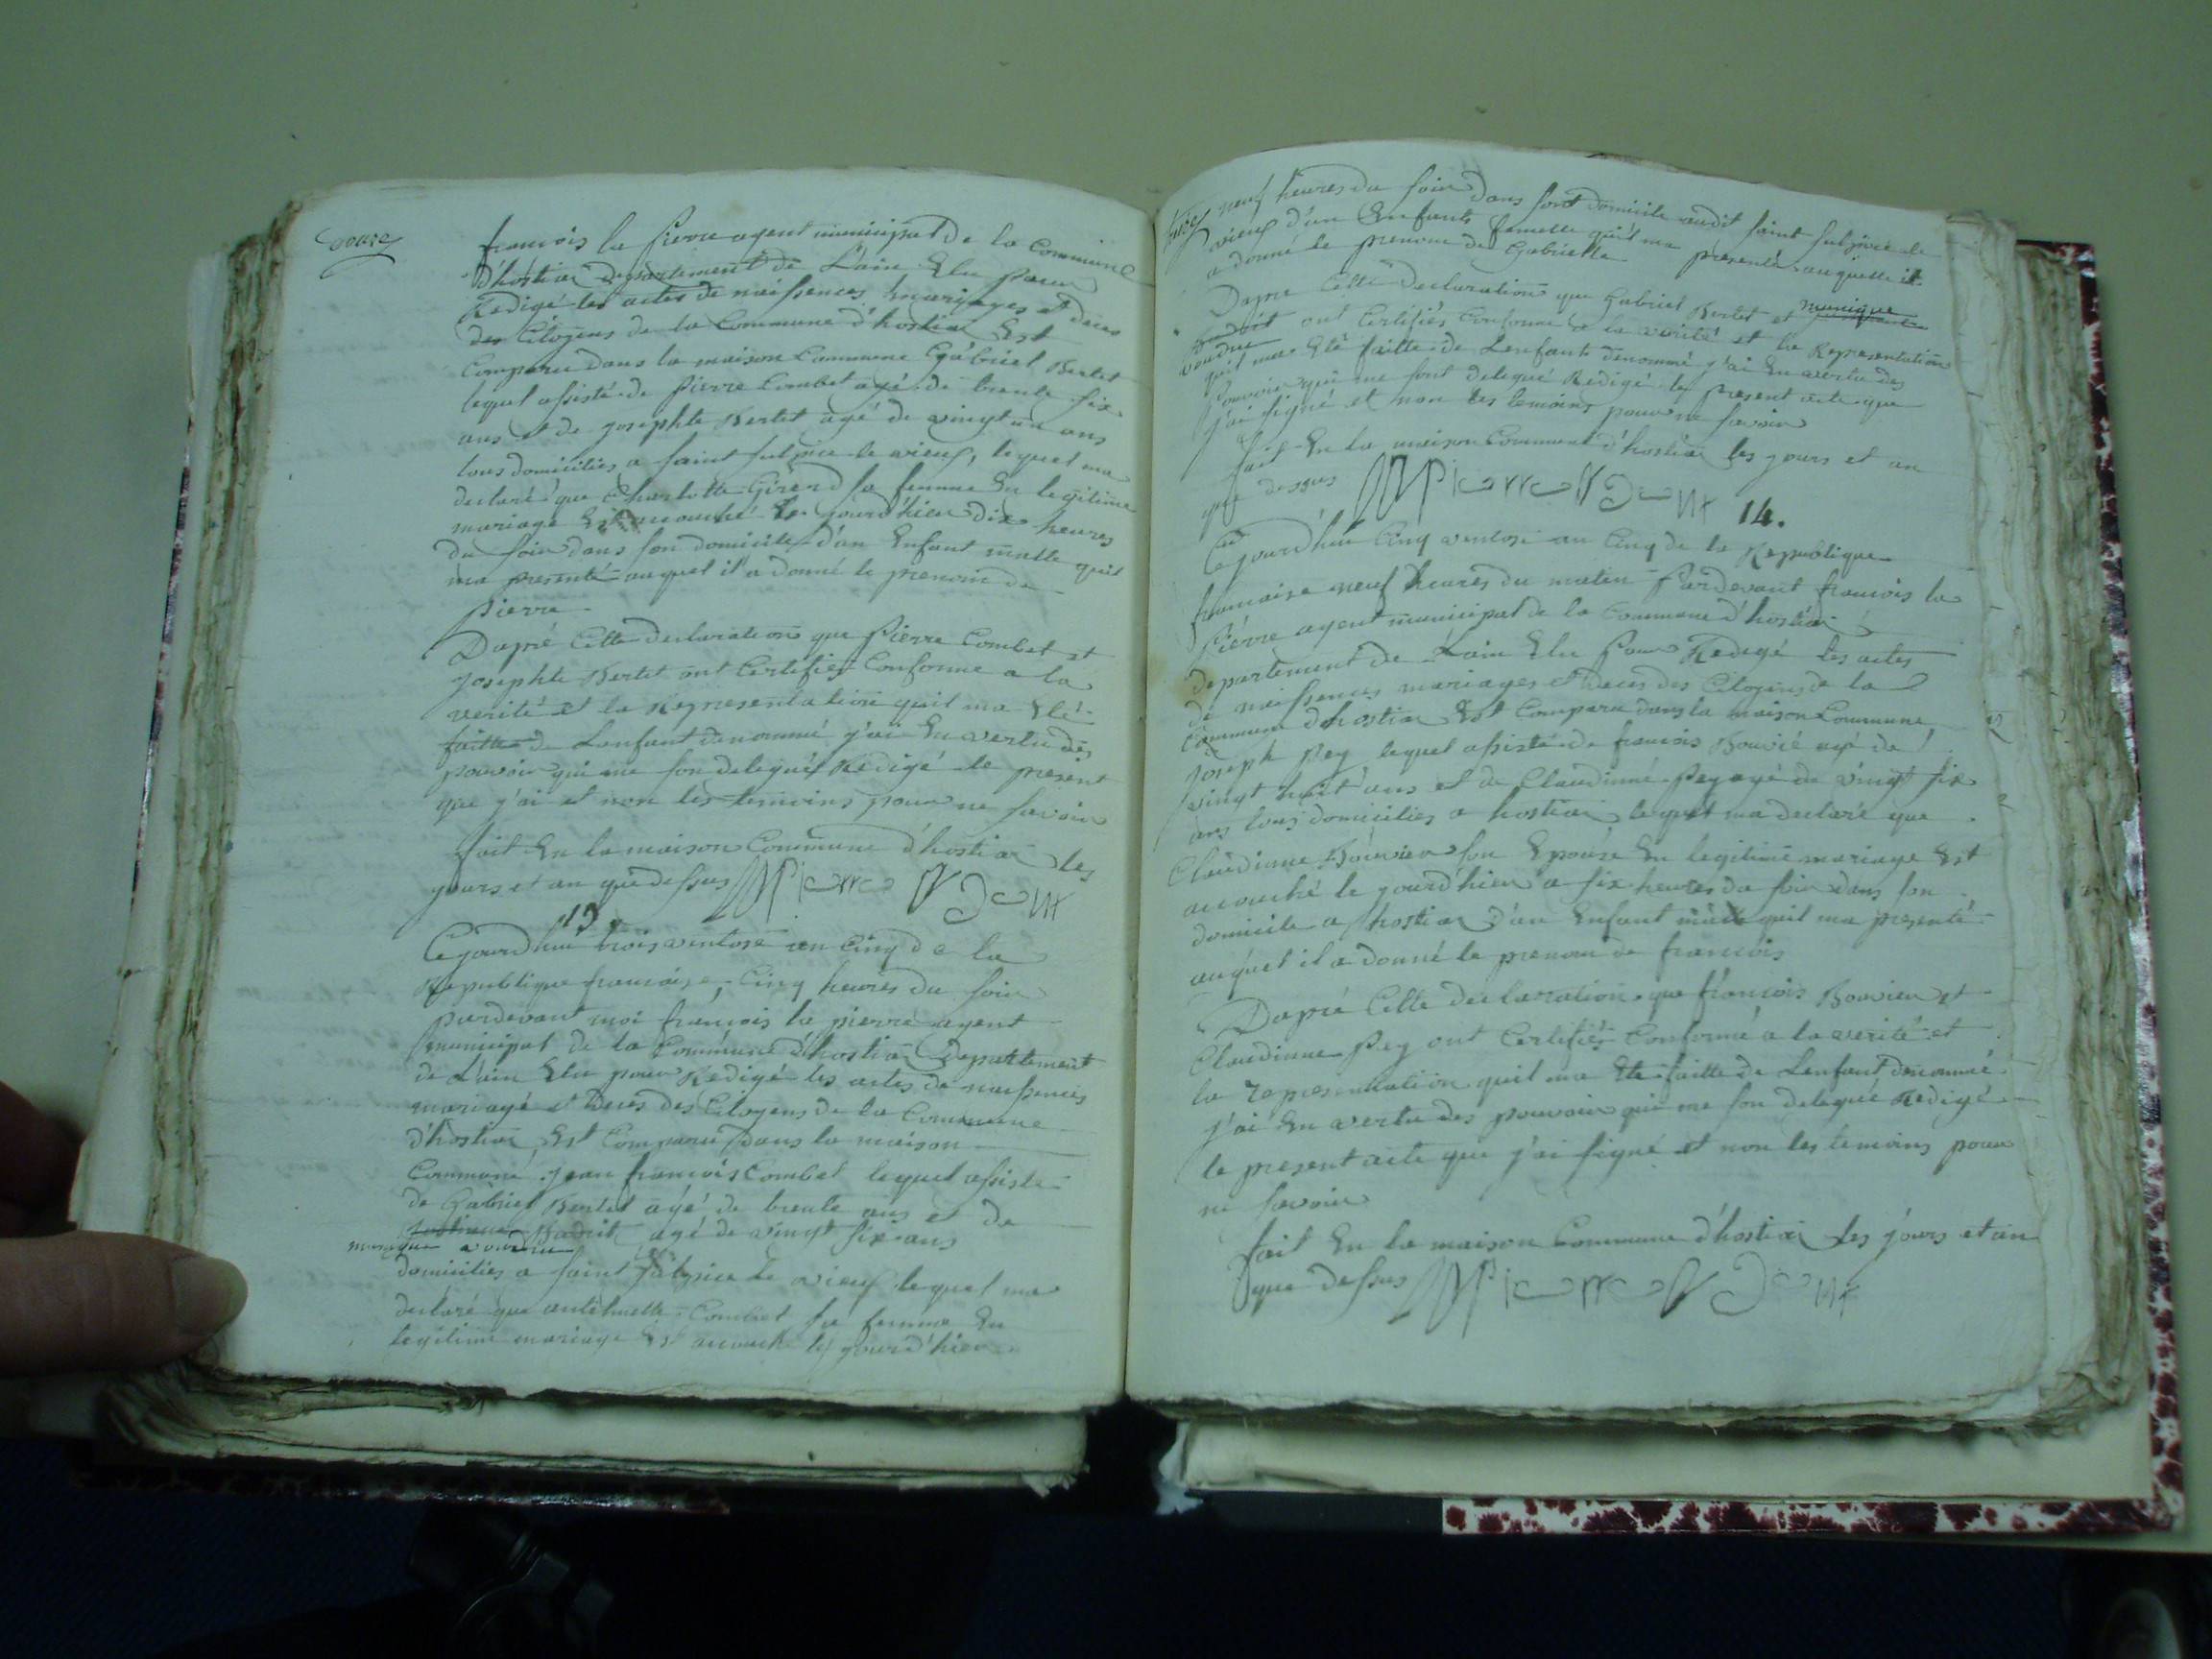 douze
francois la pierre agent municipal de la Commune
d'hostiaz departement de L'ain Elu pour
Redigé les actes de naissences mariages et deces
des Citoyens de la Commune d'hostiaz Est
Comparu dans la maison Commune Gabriel Bertet
lequel assisté de pierre Combet agé de trente six
ans et de josephte Bertet agé de vingt un ans
tous domiciliés a saint sulpice le vieux, lequel ma
declaré que Charlotte Girerd sa femme En legitime
mariage Est accouché Le jourd'hier dix heures
du soir dans son domicile d'un Enfant malle quil
ma presenté auquel il a donné le prenom de
pierre
Dapré Cette declaration que pierre Combet et
josephte Bertet ont Certifiés Conforme a la
verité et la Representation quil ma Eté
faitte de Lenfant denommé j'ai En vertu des
pouvoir qui me son delegués Redigé le present
que j'ai et non les temoins pour ne savoir
fait En la maison Commune d'hostiaz les
jours et an que dessus
13.
Cejourdhui trois ventose an Cinq de la
Republique francaise, Cinq heures du soir
pardevant moi francois la pierre agent
municipal de la Commune d'hostiaz departement
de L'ain Elu pour Redigé les actes de naissences
mariagé et deces des Citoyens de la Commune
d'hostiaz Est Comparu dans la maison
Commune jean francois Combet lequel assisté
de Gabriel Bertet agé de trente ans et de
agé de vingt six ans
domiciliés a saint sulpice le vieux lequel ma
declaré que anthelmette Combet sa femme En
legitime mariage Est accouché le jourd'hier
neuf heures du soir dans sont domicile audit saint sulpice le
vieux d'un Enfants femelle quil ma presenté auquelle il
a donné le prenom de Gabrielle
Dapre Cette declaration que Gabriel Bertet et munique
ont Certifiés Conforme a la verité et la Representation
quil ma Eté faitte de Lenfant denommé j'ai En vertu des
pouvoir qui me sont delegué Redigé le present acte que
j'ai signé et non les temoins pour ne savoir
fait En la maison Commune d'hostiaz les jours et an
que dessus
14.
Cejourd'hui Cinq ventose an Cinq de la Republique
francaise neuf heures du matin pardevant francois la
pierre agent municipal de la Commune d'hostiaz
departement de L'ain Elu pour Redigé les actes
de naissences mariages et deces des Citoyens de la
Commune d'hostiaz Est Comparu dans la maison Commune
joseph Pey lequel assisté de francois Bouvié agé de
vingt huit ans et de Claudinne Pey agé de vingt six
ans tous domiciliés a hostiaz lequel ma declaré que
Claudinne Bouvier son Epouse En legitime mariage Est
accouché le jourd'hier a six heures du soir dans son
domicile a hostiaz d'un Enfant malle quil ma presenté
auquel il a donné le prenom de francois
Dapré Cette declaration que francois Bouvier et
Claudinne Pey ont Certifiés Conforme a la verité et
la representation quil ma Eté faitte de Lenfant denommé
j'ai En vertu des pouvoir qui me son delegué Redigé
le present acte que j'ai signé et non les temoins pour
ne savoir
fait En la maison Commune d'hostiaz les jours et an
que dessus